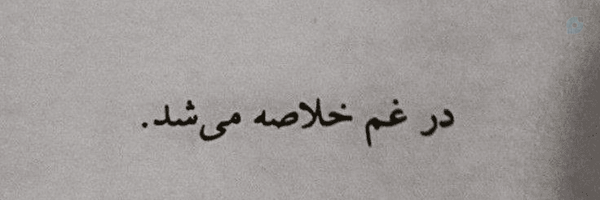 در غم خلاصه می‌شد.